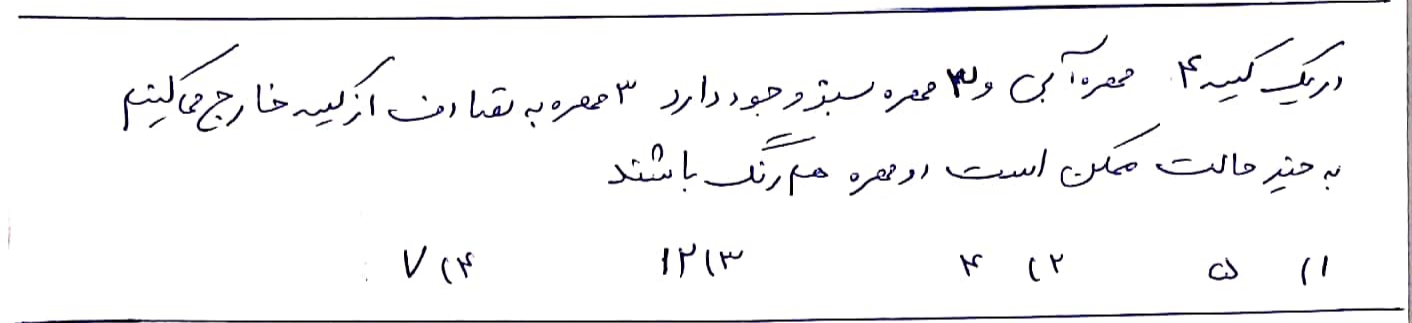 در یک کیسه ۴ مهره آبی و ۳ مهره سبز وجود دارد ۳ مهره به تصادف از کیسه خارج می کنیم
به چند حالت ممکن است دو مهره هم رنگ باشند
۱) ۵ ۲) ۴ ۳) ۱۲ ۴) ۷